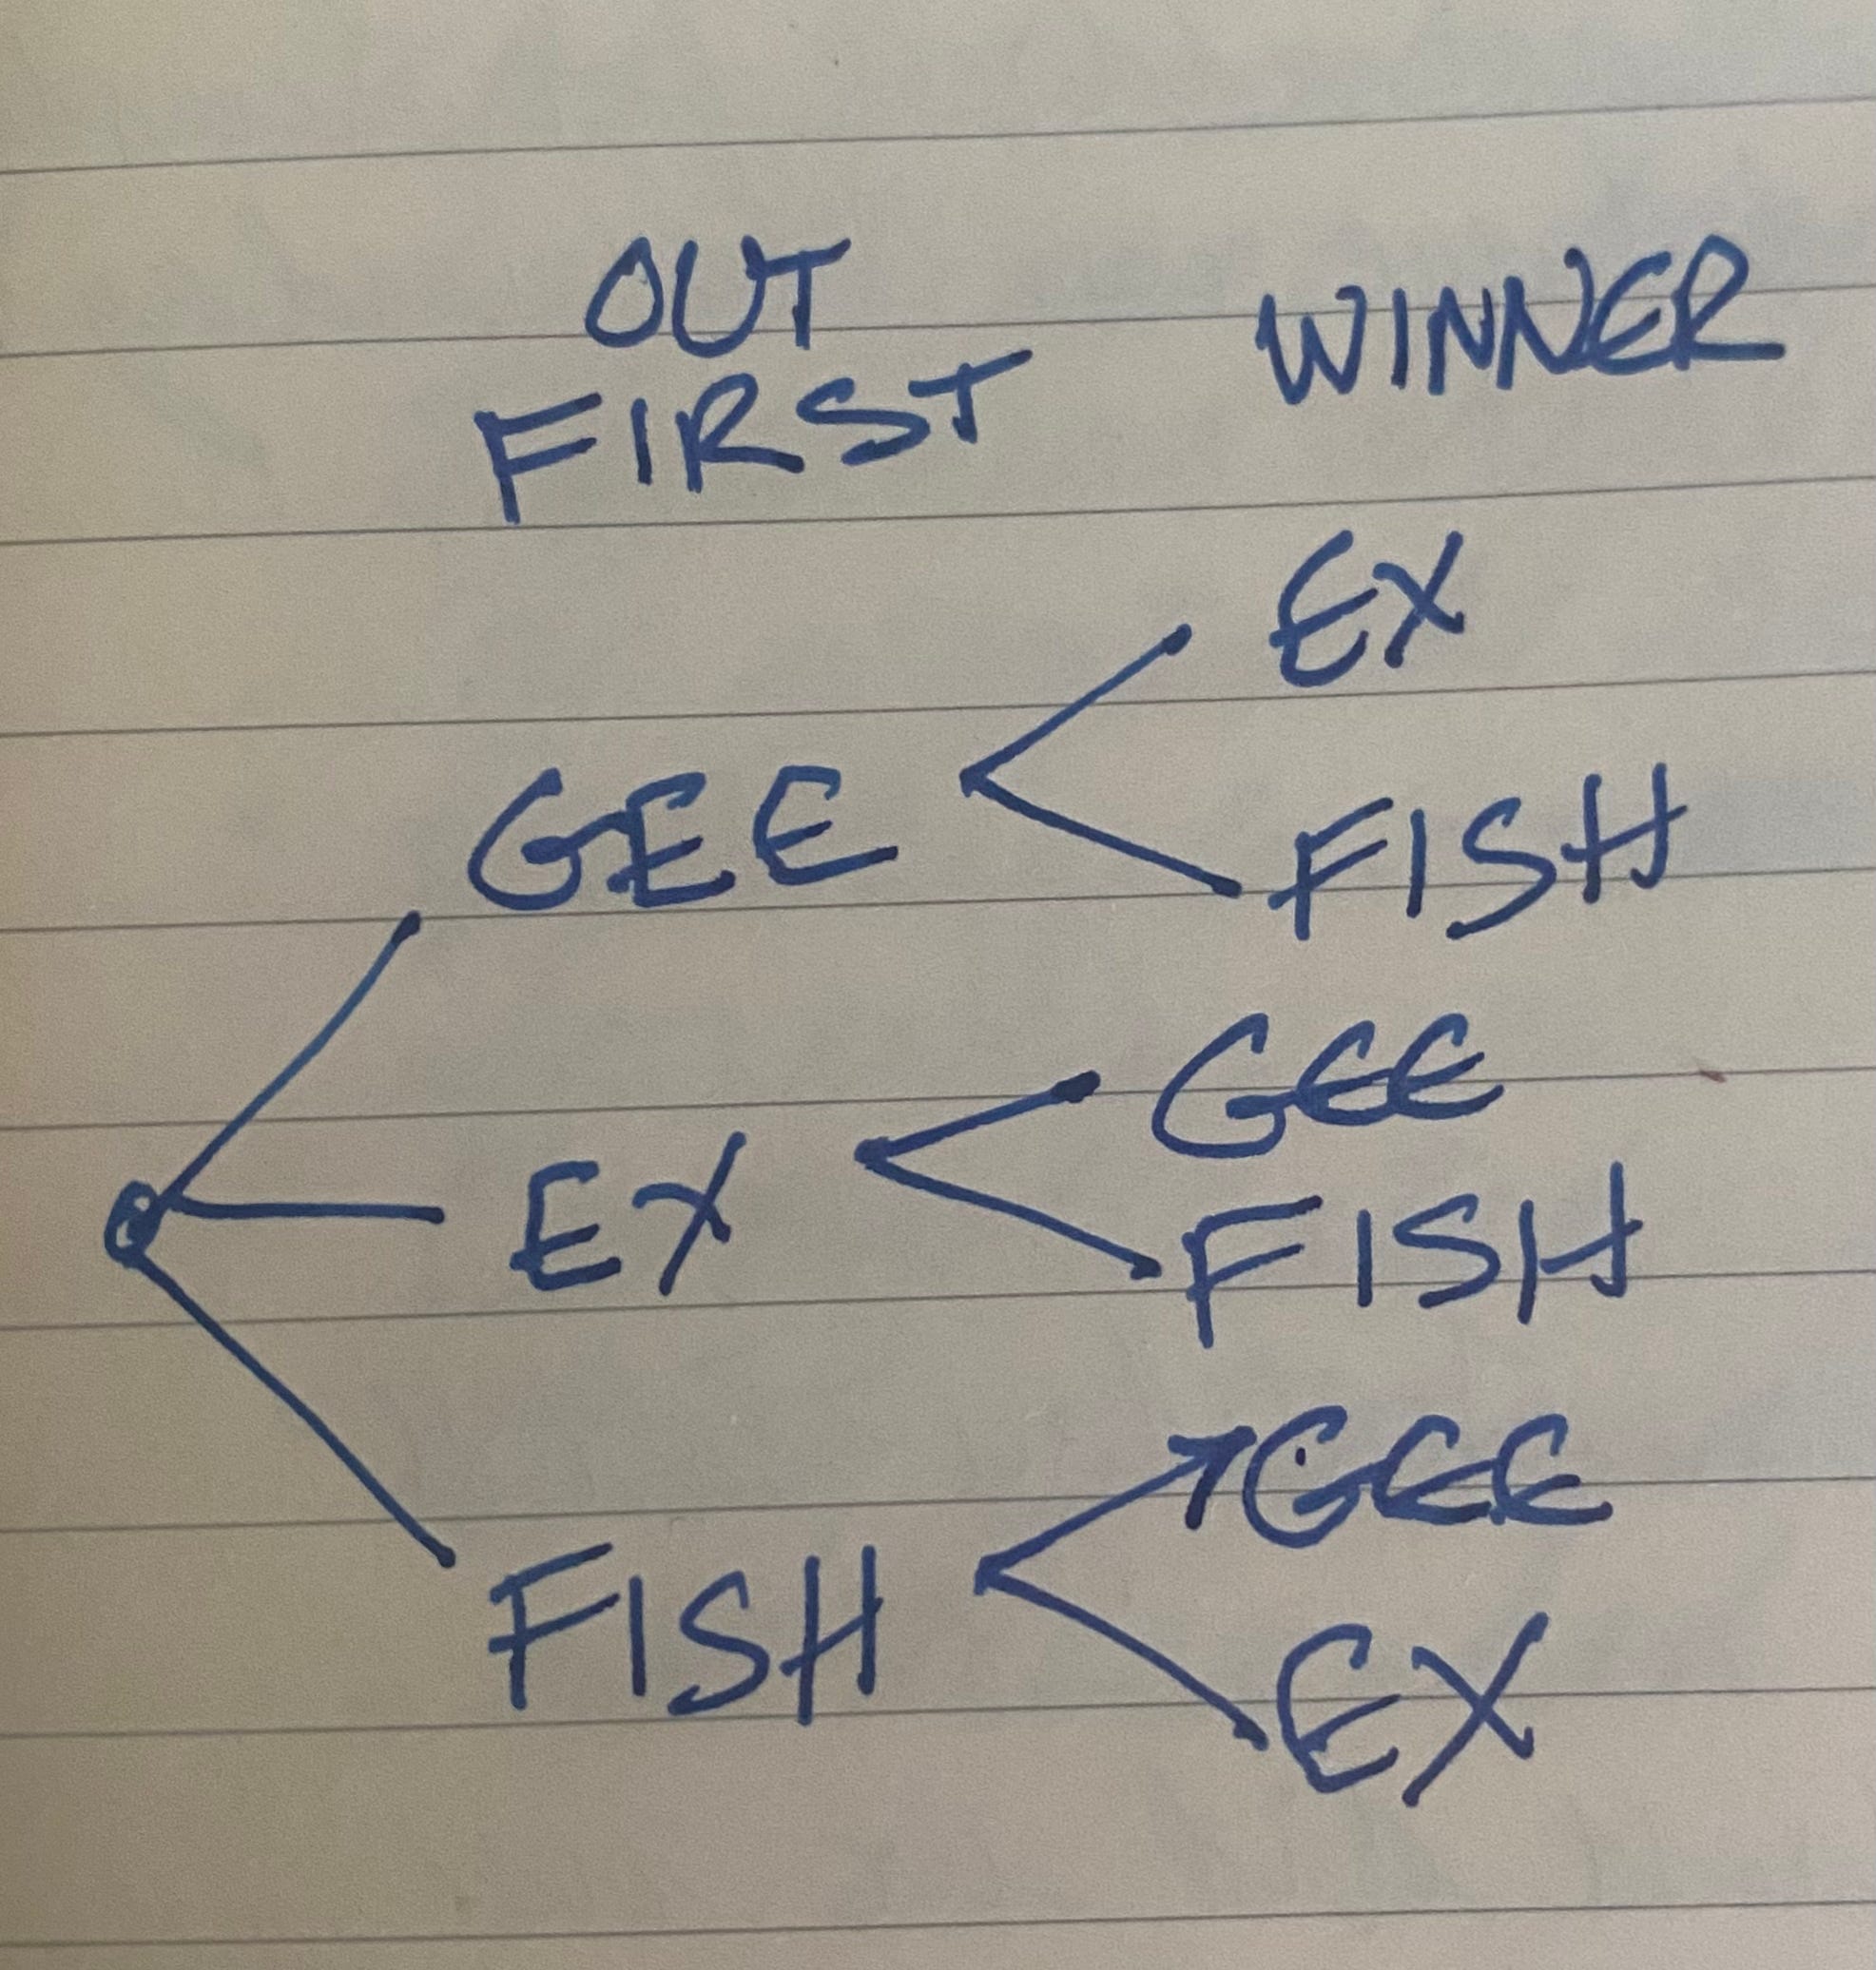 OUT
FIRST
WINNER
EX
GEE
FISH
GEE
EX
FISH
GEE
FISH
EX